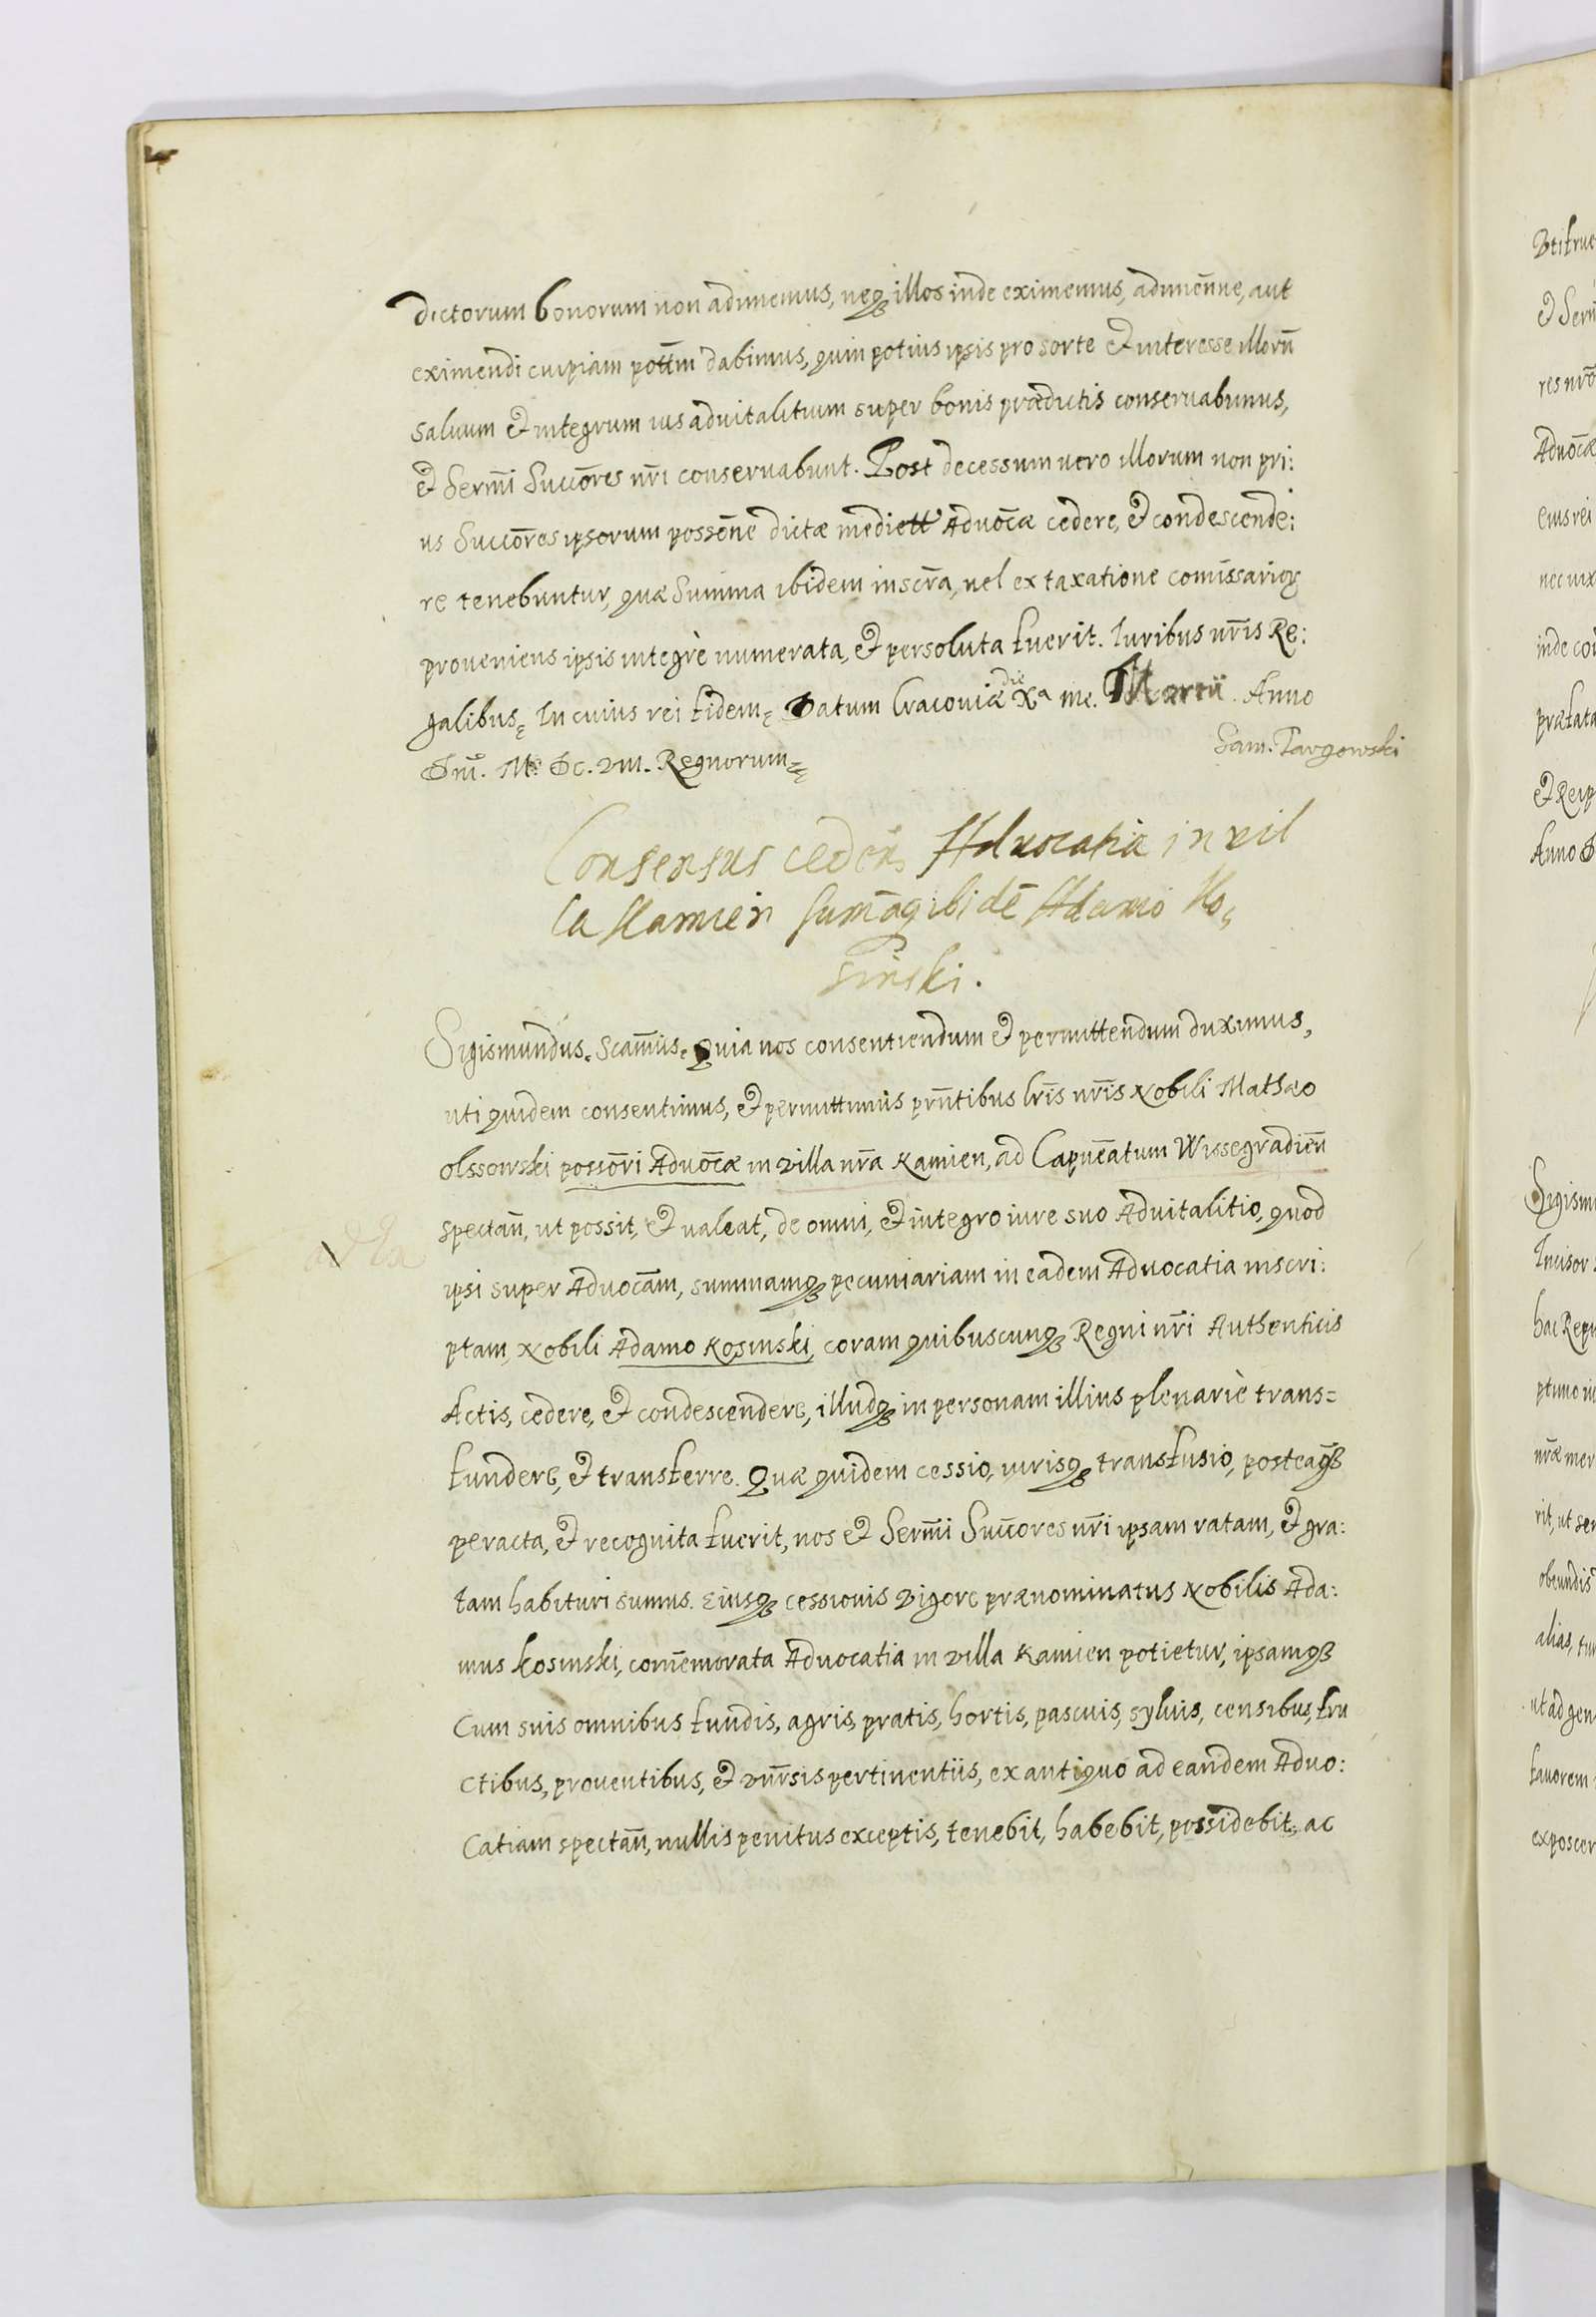 dictorum bonorum non adimemus, neqꝫ illos inde eximemus, adimēnve, aut
eximendi cuipiam pottm̄ dabimus, quin potius ipsis pro sorte et interesse illorū
saluum et integrum ius aduitalitium super bonis prædictis conseruabimus,
et Serm̄i Succōres nr̄i conseruabunt. Post decessum uero illorum non pri:
us Succōres ipsorum possōne dictæ mediett Aduōcæ cedere, et condescende:
re tenebuntur, quæ Summa ibidem inscr̄a, uel ex taxatione comissarioꝝ
proueniens ipsis integrè numerata, et persoluta fuerit. Iuribus nr̄is Re:
galibus. In cuius rei fidem. Datum Cracouiæ die Xa me. Martii. Anno
Dm̄. M. Dc. VIII. Regnorum
Sam. Targowski
Consensus ceden̄ Aduocatia in vil
la Kamien sum̄aq ibidē Adamo Ko,
sinski.
Sigismundus. Scam̄us. Quia nos consentiendum et permittendum duximus,
uti quidem consentimus, et permittimus prn̄tibus lr̄is nr̄is Nobili Mathæo
olssowski possōri Aduōcæ in villa nr̄a Kamien, ad Capnēatum Wissegradien̄
spectan̄, ut possit, et ualeat, de omni, et integro iure suo Aduitalitio, quod
ipsi super Aduocām, summamqꝫ pecuniariam in eadem Aduocatia inscri:
ptam, Nobili Adamo Kosinski, coram quibuscunqꝫ Regni nr̄i Authenticis
Actis, cedere, et condescendere, illudqꝫ in personam illius plenariè trans=
fundere, et transferre. Quæ quidem cessio, iurisqꝫ transfusio, posteaqꝫ
peracta, et recognita fuerit, nos et Serm̄i Succ̄ores nr̄i ipsam ratam, et gra:
tam habituri sumus. Eiusqꝫ cessionis vigore prænominatus Nobilis Ada:
mus Kosinski, com̄emorata Aduocatia in villa Kamien potietur, ipsamqꝫ
Cum suis omnibus fundis, agris, pratis, hortis, pascuis, syluis, censibus, fru
ctibus, prouentibus, et vnr̄sis pertinentiis, ex antiquo ad eandem Aduo:
Catiam spectan̄, nullis penitus exceptis, tenebit, habebit, possidebit, ac